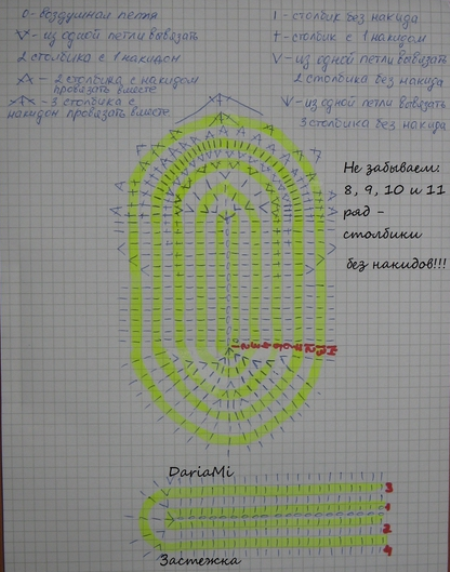 0 - воздушная петля
V - из одной петли вывязать
2 столбика с 1 накидом
- 2 столбика с накидом
провязать вместе
- 3 столбика с
накидом провязать вместе
I - столбик без накида
† - столбик с 1 накидом
V - из одной петли вывязать
2 столбика без накида
V - из одной петли вывязать
3 столбика без накида
Не забываем:
8, 9, 10 и 11
ряд -
столбики
без накидов!!!
DariaMi
3
1
2
4
Застежка